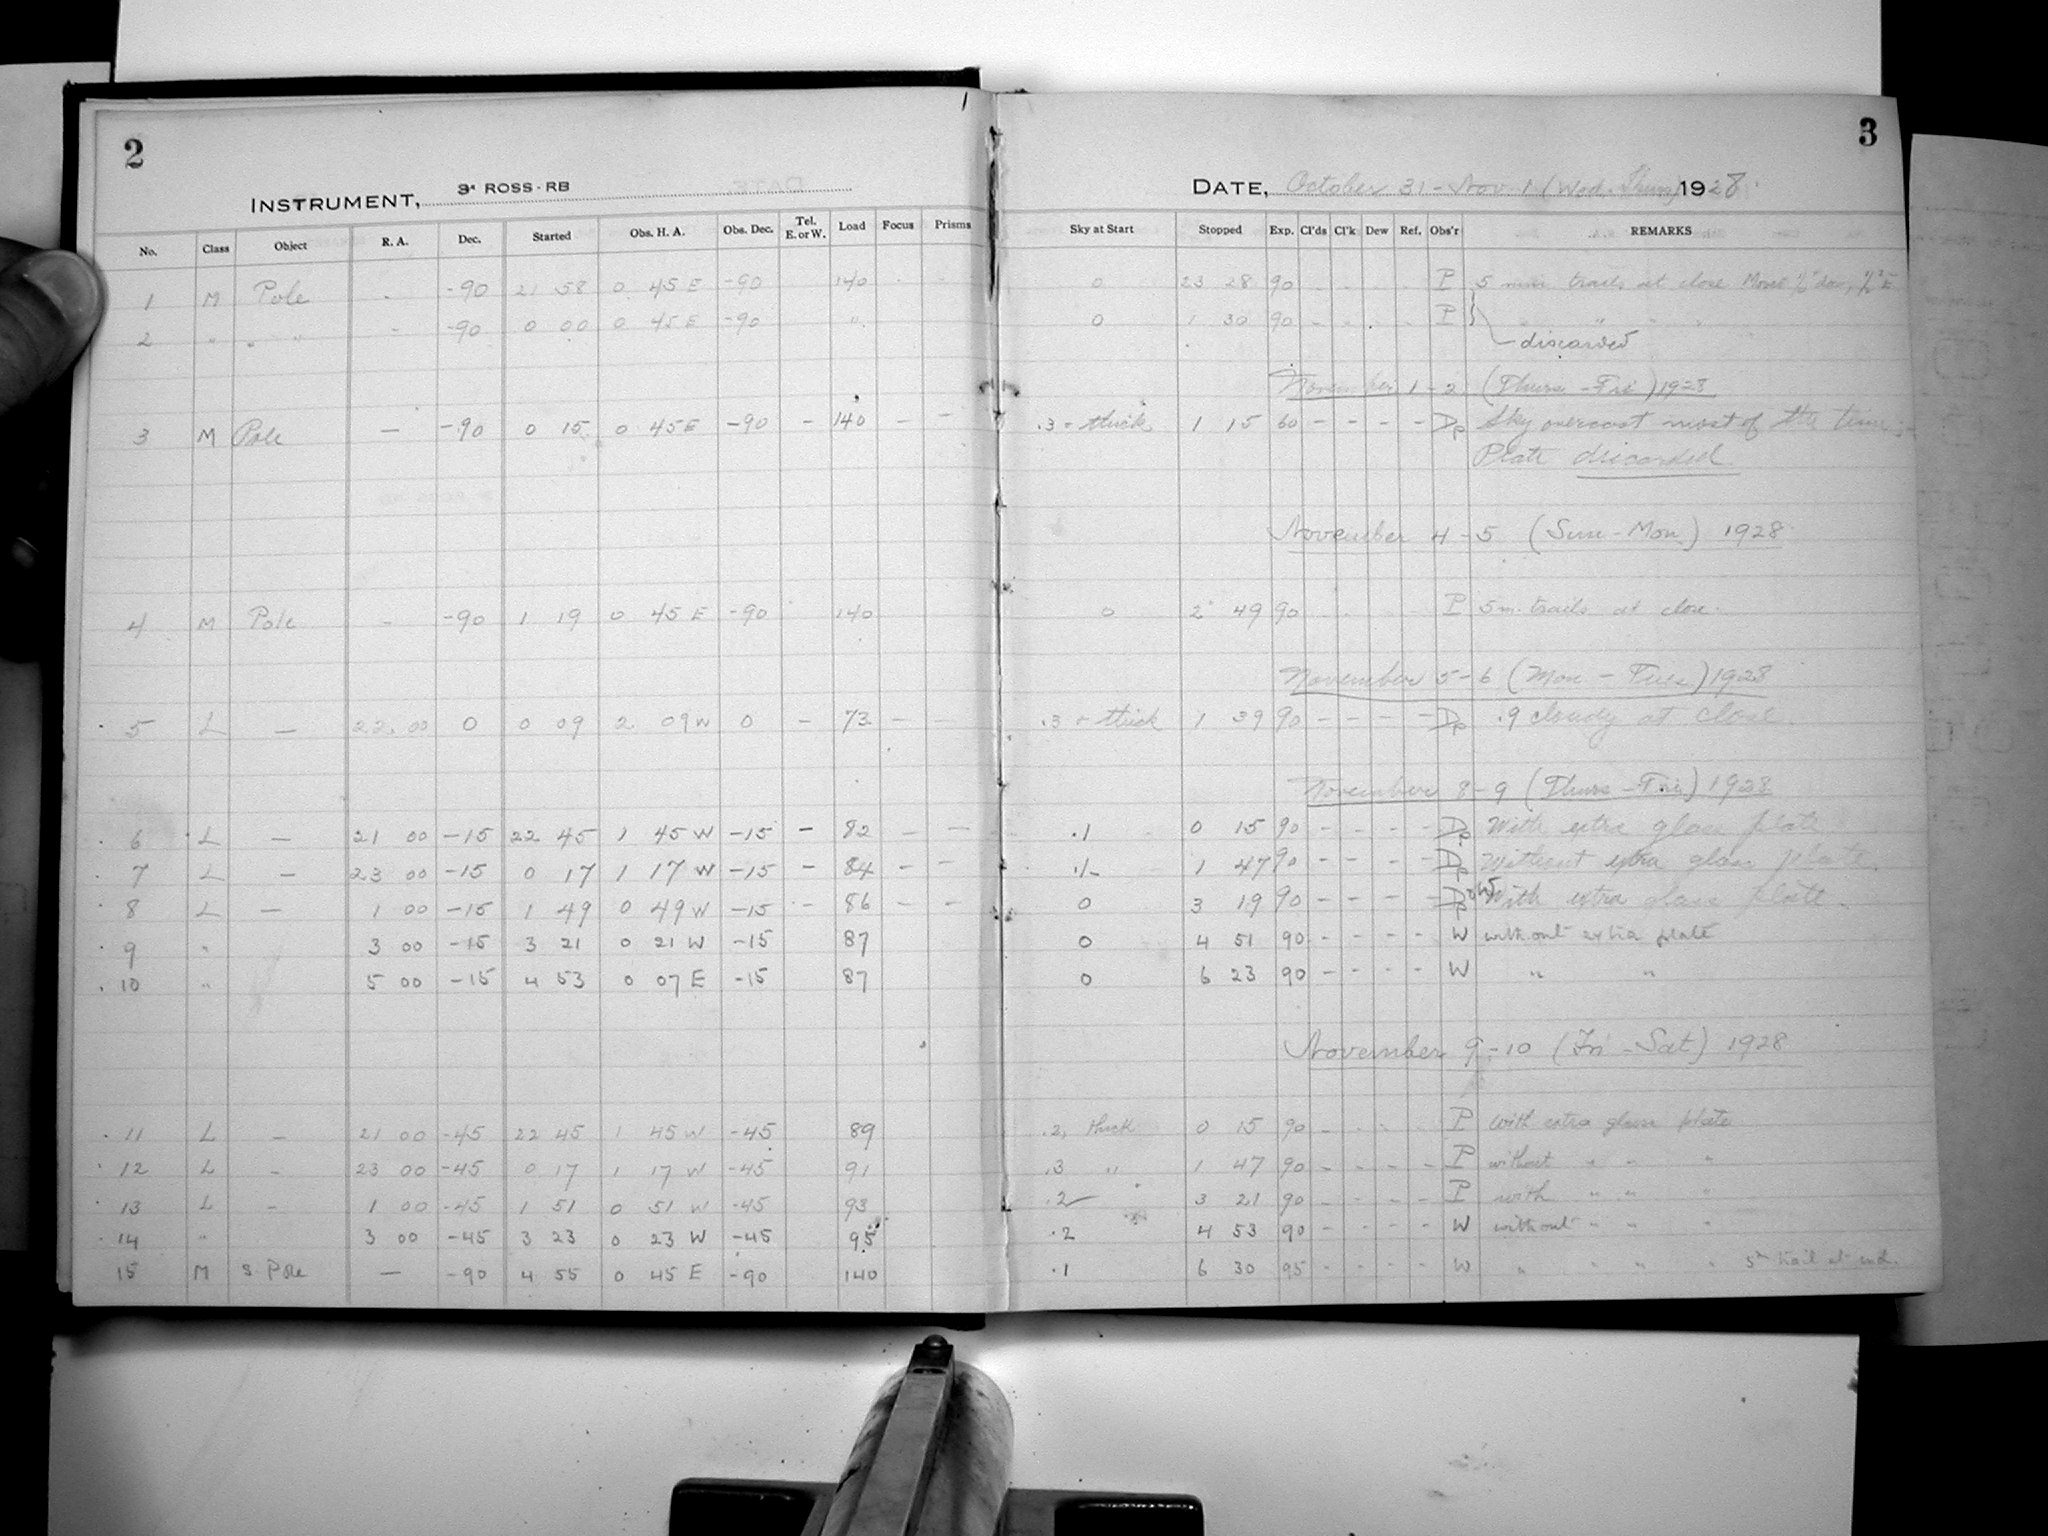 2
INSTRUMENT, 3" ROSS-RB
No. Class Object R. A. Dec. Started Obs. H. A. Obs. Dec. Tel. E. or W. Load Focus Prisms
1 M Pole - -90 21 58 0 45 E -90 140
2 " " " - -90 0 00 0 45 E -90 "
3 M Pole — -90 0 15 0 45 E -90 - 140 - -
4 M Pole - -90 1 19 0 45 E -90 140
5 L — 22 00 0 0 09 2 09 W 0 - 73 - -
6 L — 21 00 -15 22 45 1 45 W -15 - 82 - -
7 L — 23 00 -15 0 17 1 17 W -15 - 84 - -
8 L — 1 00 -15 1 49 0 49 W -15 - 86 - -
9 " 3 00 -15 3 21 0 21 W -15 87
10 " 5 00 -15 4 53 0 07 E -15 87
11 L - 21 00 -45 22 45 1 45 W -45 89
12 L - 23 00 -45 0 17 1 17 W -45 91
13 L - 1 00 -45 1 51 0 51 W -45 93
14 " 3 00 -45 3 23 0 23 W -45 95
15 M S Pole — -90 4 55 0 45 E -90 140
3
DATE, October 31 - Nov 1 (Wed. Thurs) 1928.
Sky at Start Stopped Exp. Cl'ds Cl'k Dew Ref. Obs'r REMARKS
0 23 28 90 - - - - P 5 min. trails at close
0 1 30 90 - - - - P " " " "
discarded
November 1-2 (Thurs - Fri) 1928
.3 - thick 1 15 60 - - - - Dp Sky overcast most of the time
Plate discarded
November 4-5 (Sun-Mon.) 1928
0 2 49 90 P 5m. trails at close.
November 5-6 (Mon - Tues) 1928
.3 - thick 1 39 90 - - - - Dp .9 cloudy at close.
November 8-9 (Thurs - Fri) 1928
.1 0 15 90 - - - - Dp With extra glass plate
1 47 90 - - - - Dp Without extra glass plate.
0 3 19 90 - - - - Dp With extra glass plate.
0 4 51 90 - - - - W without extra plate
0 6 23 90 - - - - W " "
November 9-10 (Fri - Sat) 1928
.2, thick 0 15 90 - - - - P with extra glass plate
.3 " 1 47 90 - - - - P without " " "
.2 3 21 90 - - - - P with " " "
.2 4 53 90 - - - - W without " " "
.1 6 30 95 - - - - W " " " " 5m trail at end.